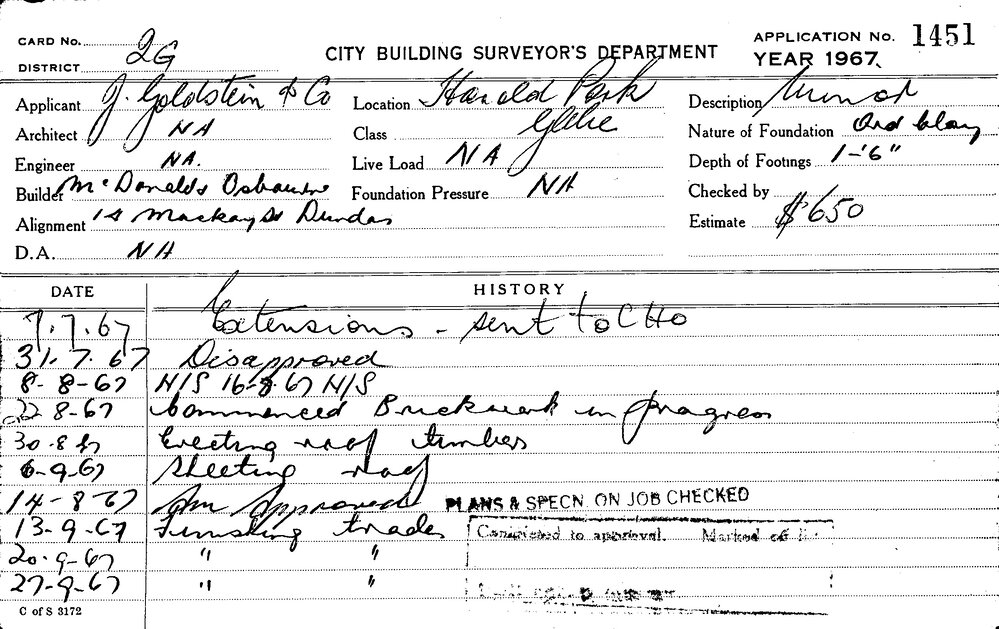 CARD No.
DISTRICT 2G
CITY BUILDING SURVEYOR'S DEPARTMENT
APPLICATION No. 1451
YEAR 1967.
Applicant J. Goldstein & Co
Location Harold Park
Description Minor
Architect NA
Class Glebe
Nature of Foundation Ord Clay
Engineer NA.
Live Load NA
Depth of Footings 1-'6"
Builder McDonalds Osbourne
Foundation Pressure NA
Checked by
Alignment 14 Mackay St Dundas
Estimate $650
D.A. NA
DATE HISTORY
7.7.67 Extensions - sent to CHO
31.7.67 Disapproved
8-8-67 N/S 16-8-67 N/S
22 8-67 Commenced Brickwork in progress
30.8.67 Erecting roof timbers
6-9-67 Sheeting roof
14-8-67 Am Approved PLANS & SPECN. ON JOB CHECKED
13-9-67 Finishing trades
Completed to approval. Marked off
20.9-67 " "
27-9-67 " "
C of S 3172